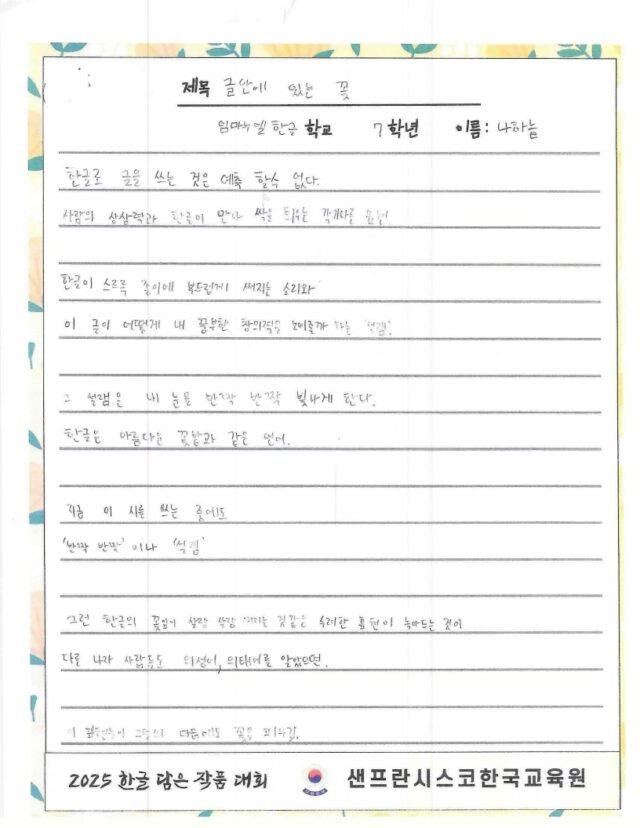 제목 글안에 있는 꽃
임마누엘 한글 학교 7 학년 이름: 나하늘
한글로 글을 쓰는 것은 예측 할수 없다.
사람의 상상력과 한글이 만나 싹을 틔우는
한글이 스르륵 종이에 부드럽게 써지는 소리와
이 글이 어떻게 내 풍부한 창의력을 '설렘'.
그 설렘은 내 눈을 반짝 반짝 빛나게 한다.
한글은 아름다운 꽃밭과 같은 언어.
지금 이 시를 쓰는 중에도
'반짝 반짝' 이나 '설렘'
그런 한글의 꽃잎이 살랑 살랑 표현이 것이
다른 나라 사람들도 의성어, 의태어를 알았으면.
이 꽃을 피우길.
2025 한글 담은 작품 대회 샌프란시스코한국교육원